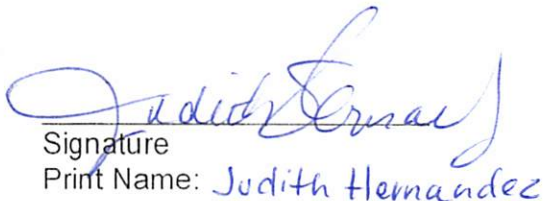 Judith Hernandez
Signature
Print Name: Judith Hernandez